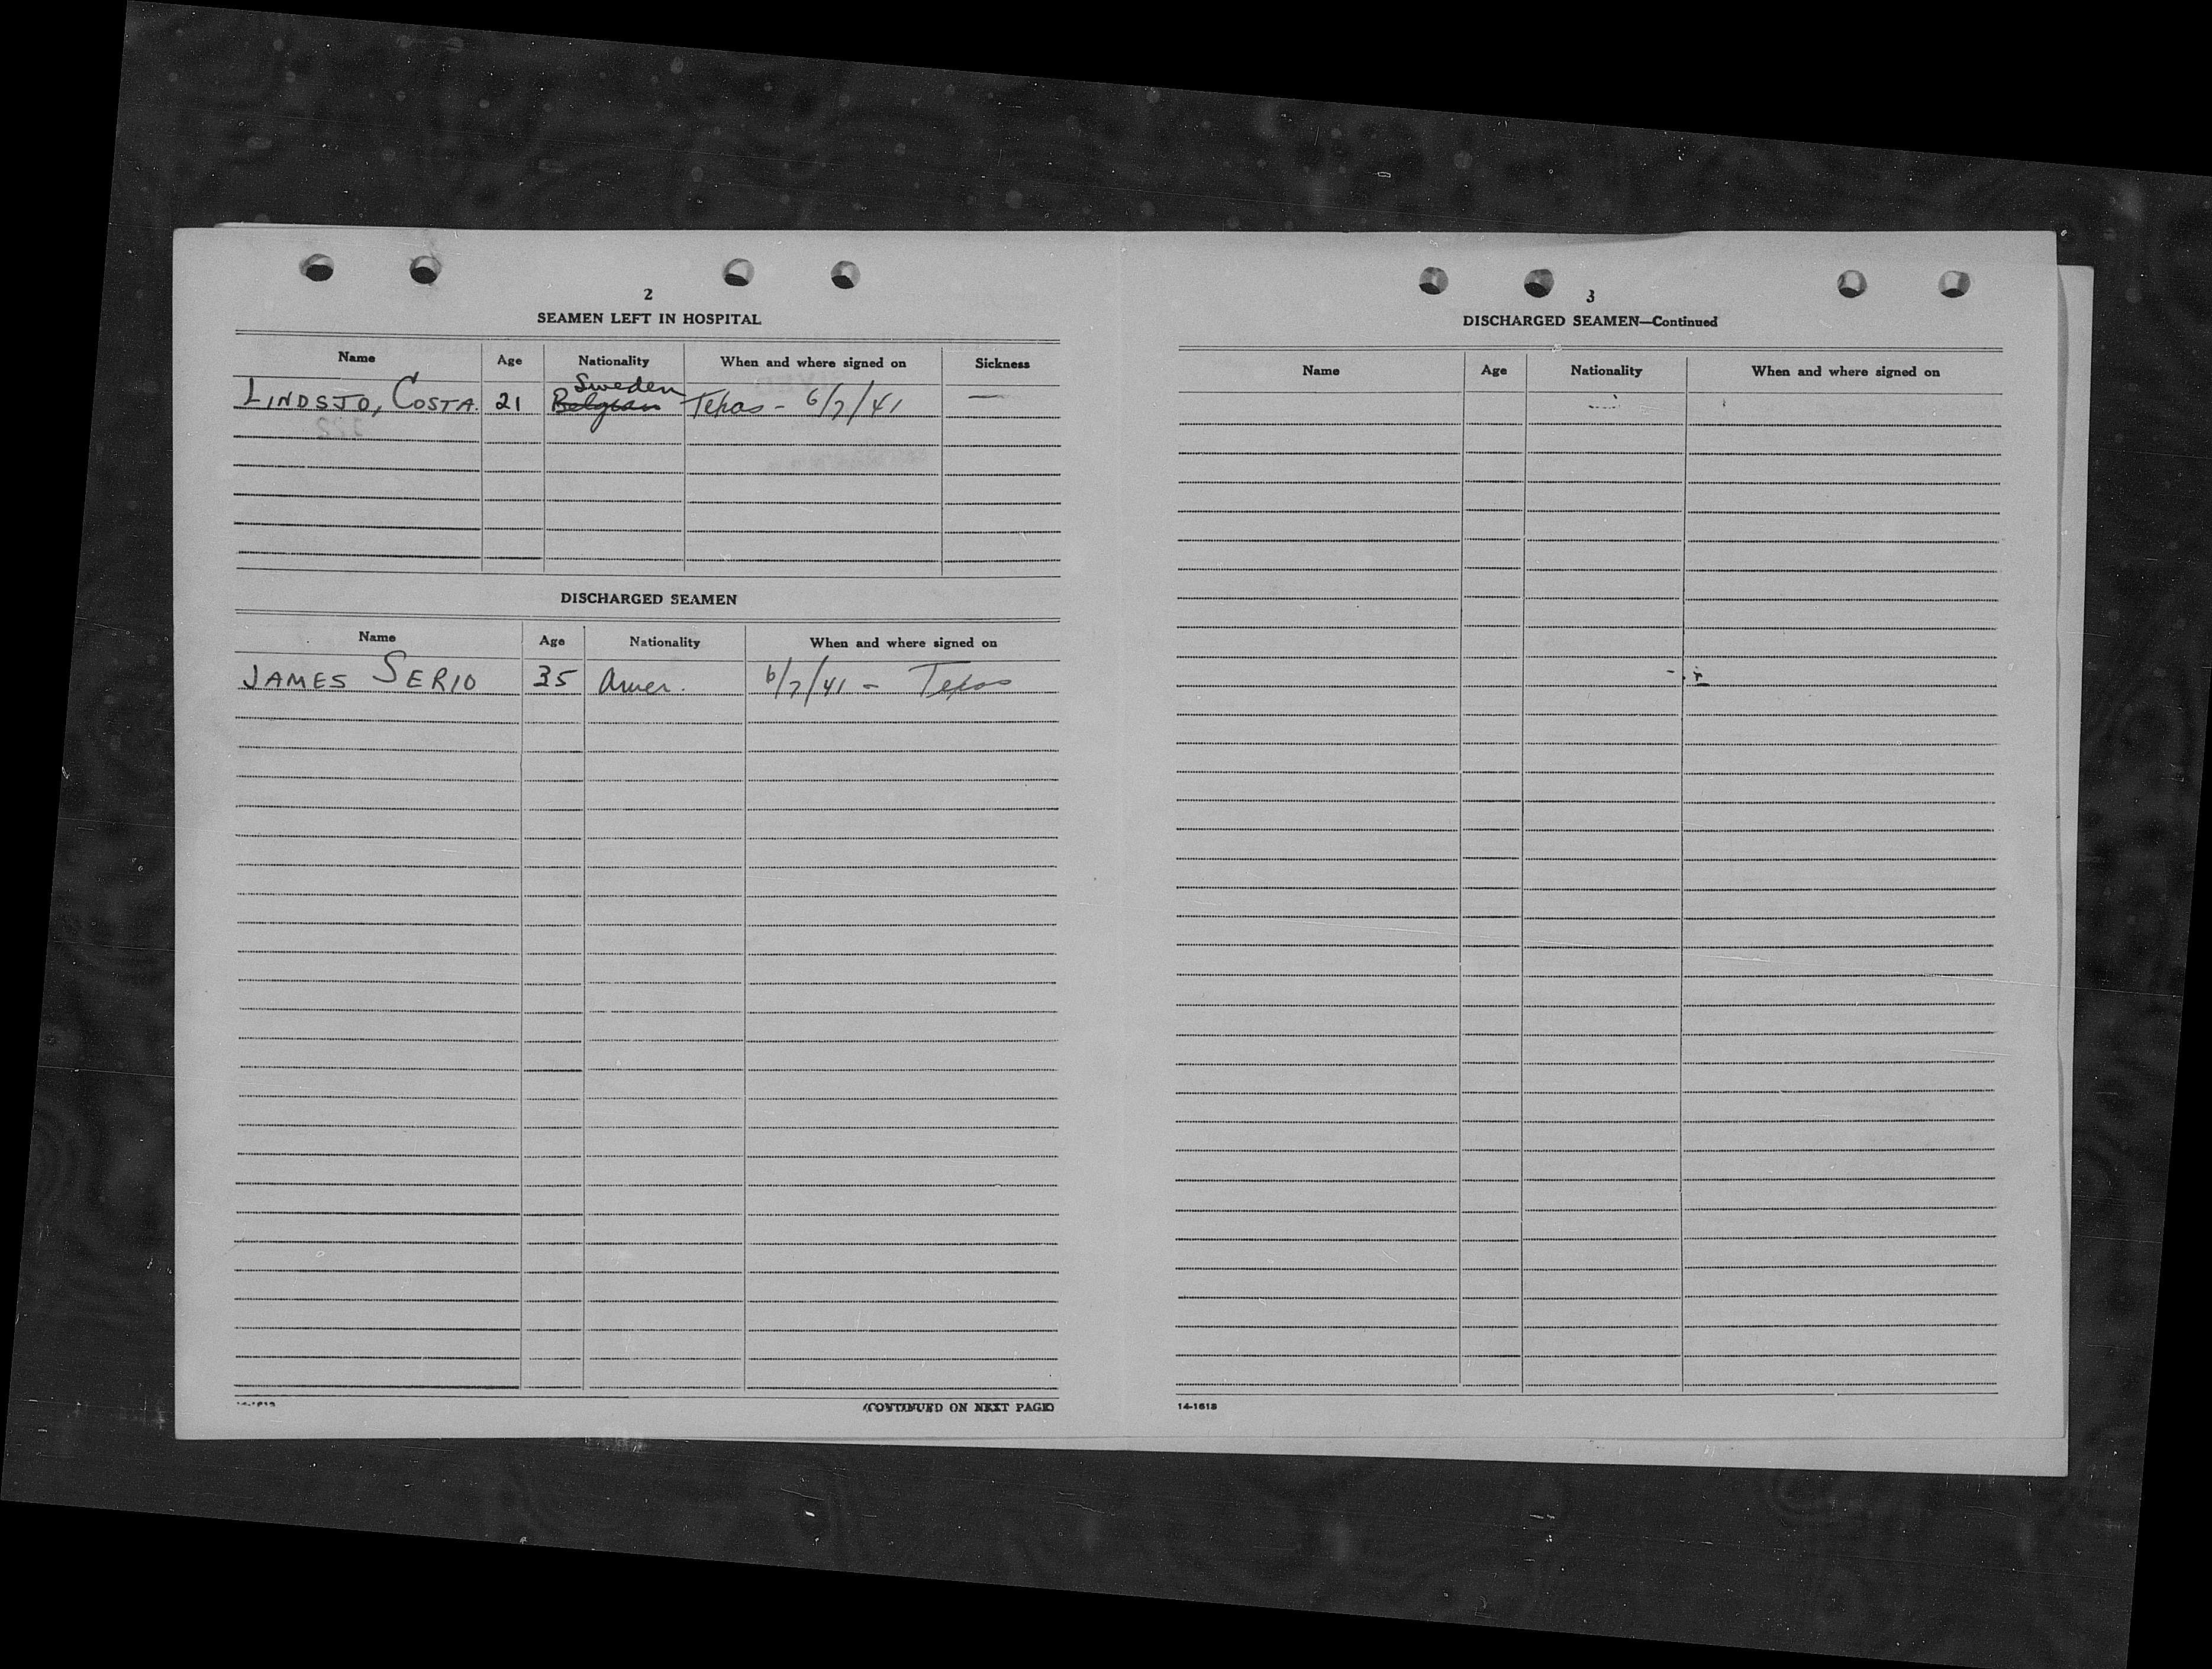 2
SEAMEN LEFT IN HOSPITAL
Name Age Nationality When and where signed on Sickness
Sweden
LINDSJO, COSTA. 21 Belgian Texas - 6/7/41 —
DISCHARGED SEAMEN
Name Age Nationality When and where signed on
JAMES SERIO 35 Amer. 6/7/41 - Texas
(CONTINUED ON NEXT PAGE)
3
DISCHARGED SEAMEN—Continued
Name Age Nationality When and where signed on
14-1618